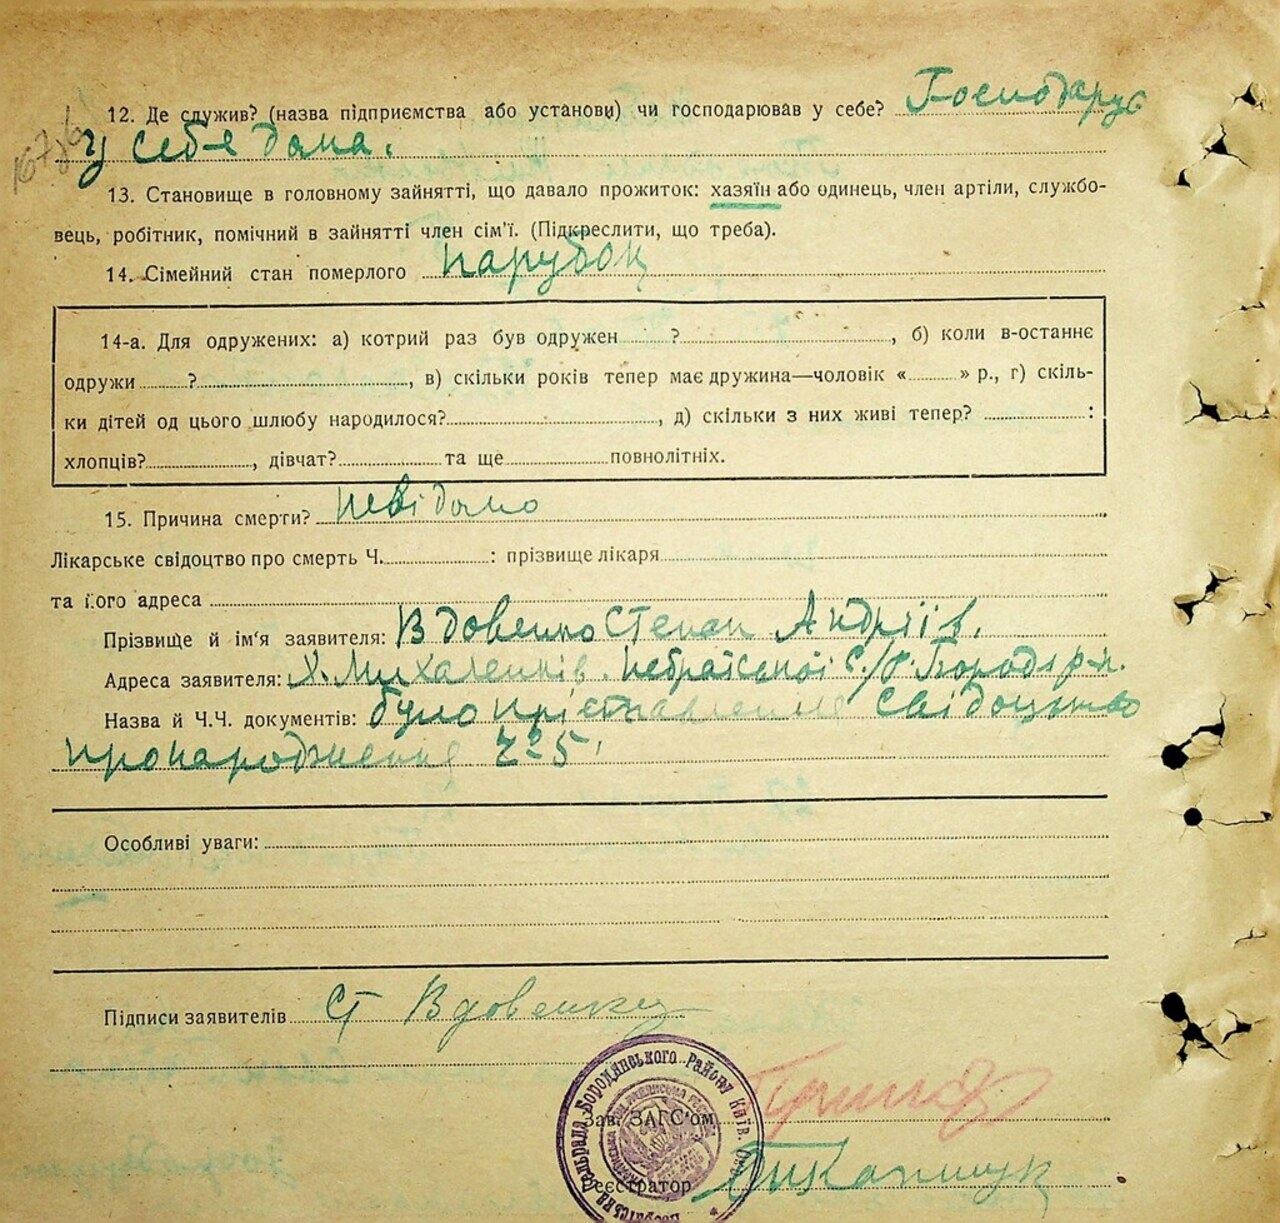 12. Де служив? (назва підприємства або установи) чи господарював у себе? Господарує
у себя дома.
13. Становище в головному зайнятті, що давало прожиток: хазяїн або одинець, член артіли, службо-
вець, робітник, помічний в зайнятті член сім'ї. (Підкреслити, що треба).
14. Сімейний стан померлого парубок
14-а. Для одружених: а) котрий раз був одружен ? , б) коли в-останнє
одружи ? , в) скільки років тепер має дружина—чоловік « » р., г) скіль-
ки дітей од цього шлюбу народилося? , д) скільки з них живі тепер? :
хлопців? , дівчат? та ще повнолітніх.
15. Причина смерти? невідомо
Лікарське свідоцтво про смерть Ч. : прізвище лікаря
та його адреса
Прізвище й ім'я заявителя: Вдовенко Степан Андріїв.
Адреса заявителя: Х. Михаленків. Небратської С./Р. Бород. р-н.
Назва й Ч.Ч. документів: було свідоцтво
про народження
Особливі уваги:
Підписи заявителів Ст Вдовенко
Зав. ЗАГС'ом
Реєстратор
Бородянського Района Київ.